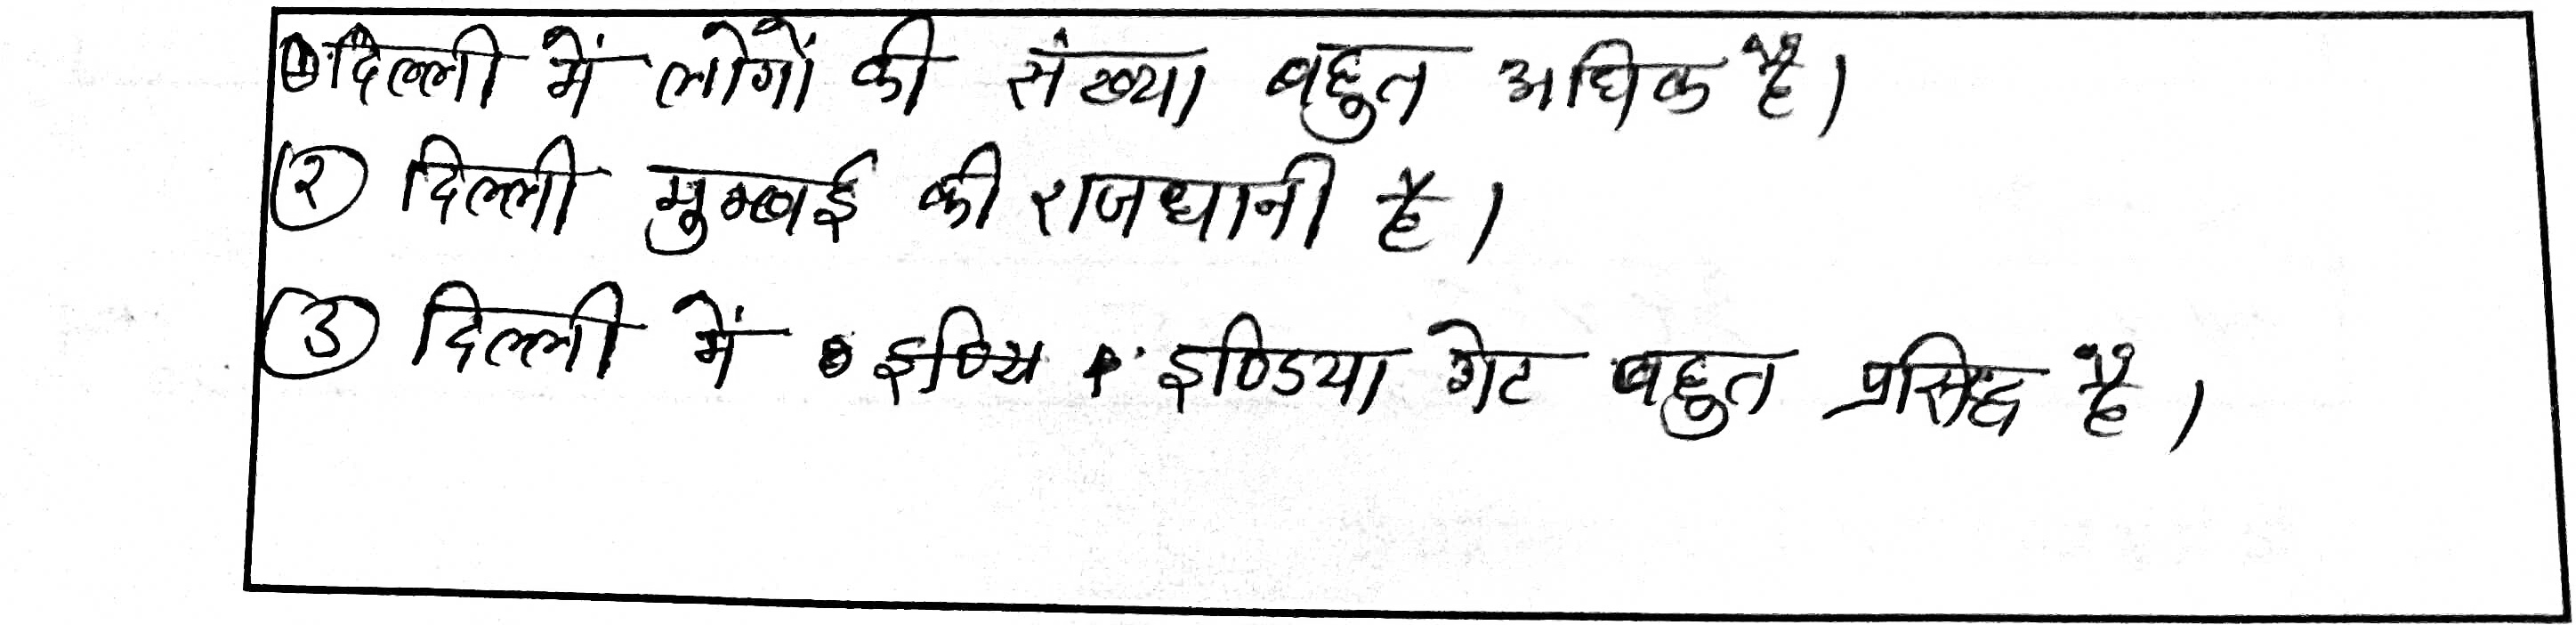 ① दिल्ली में लोगों की संख्या बहुत अधिक है।
② दिल्ली मुम्बई की राजधानी है।
③ दिल्ली में इण्यि इण्डिया गेट बहुत प्रसिद्ध है।